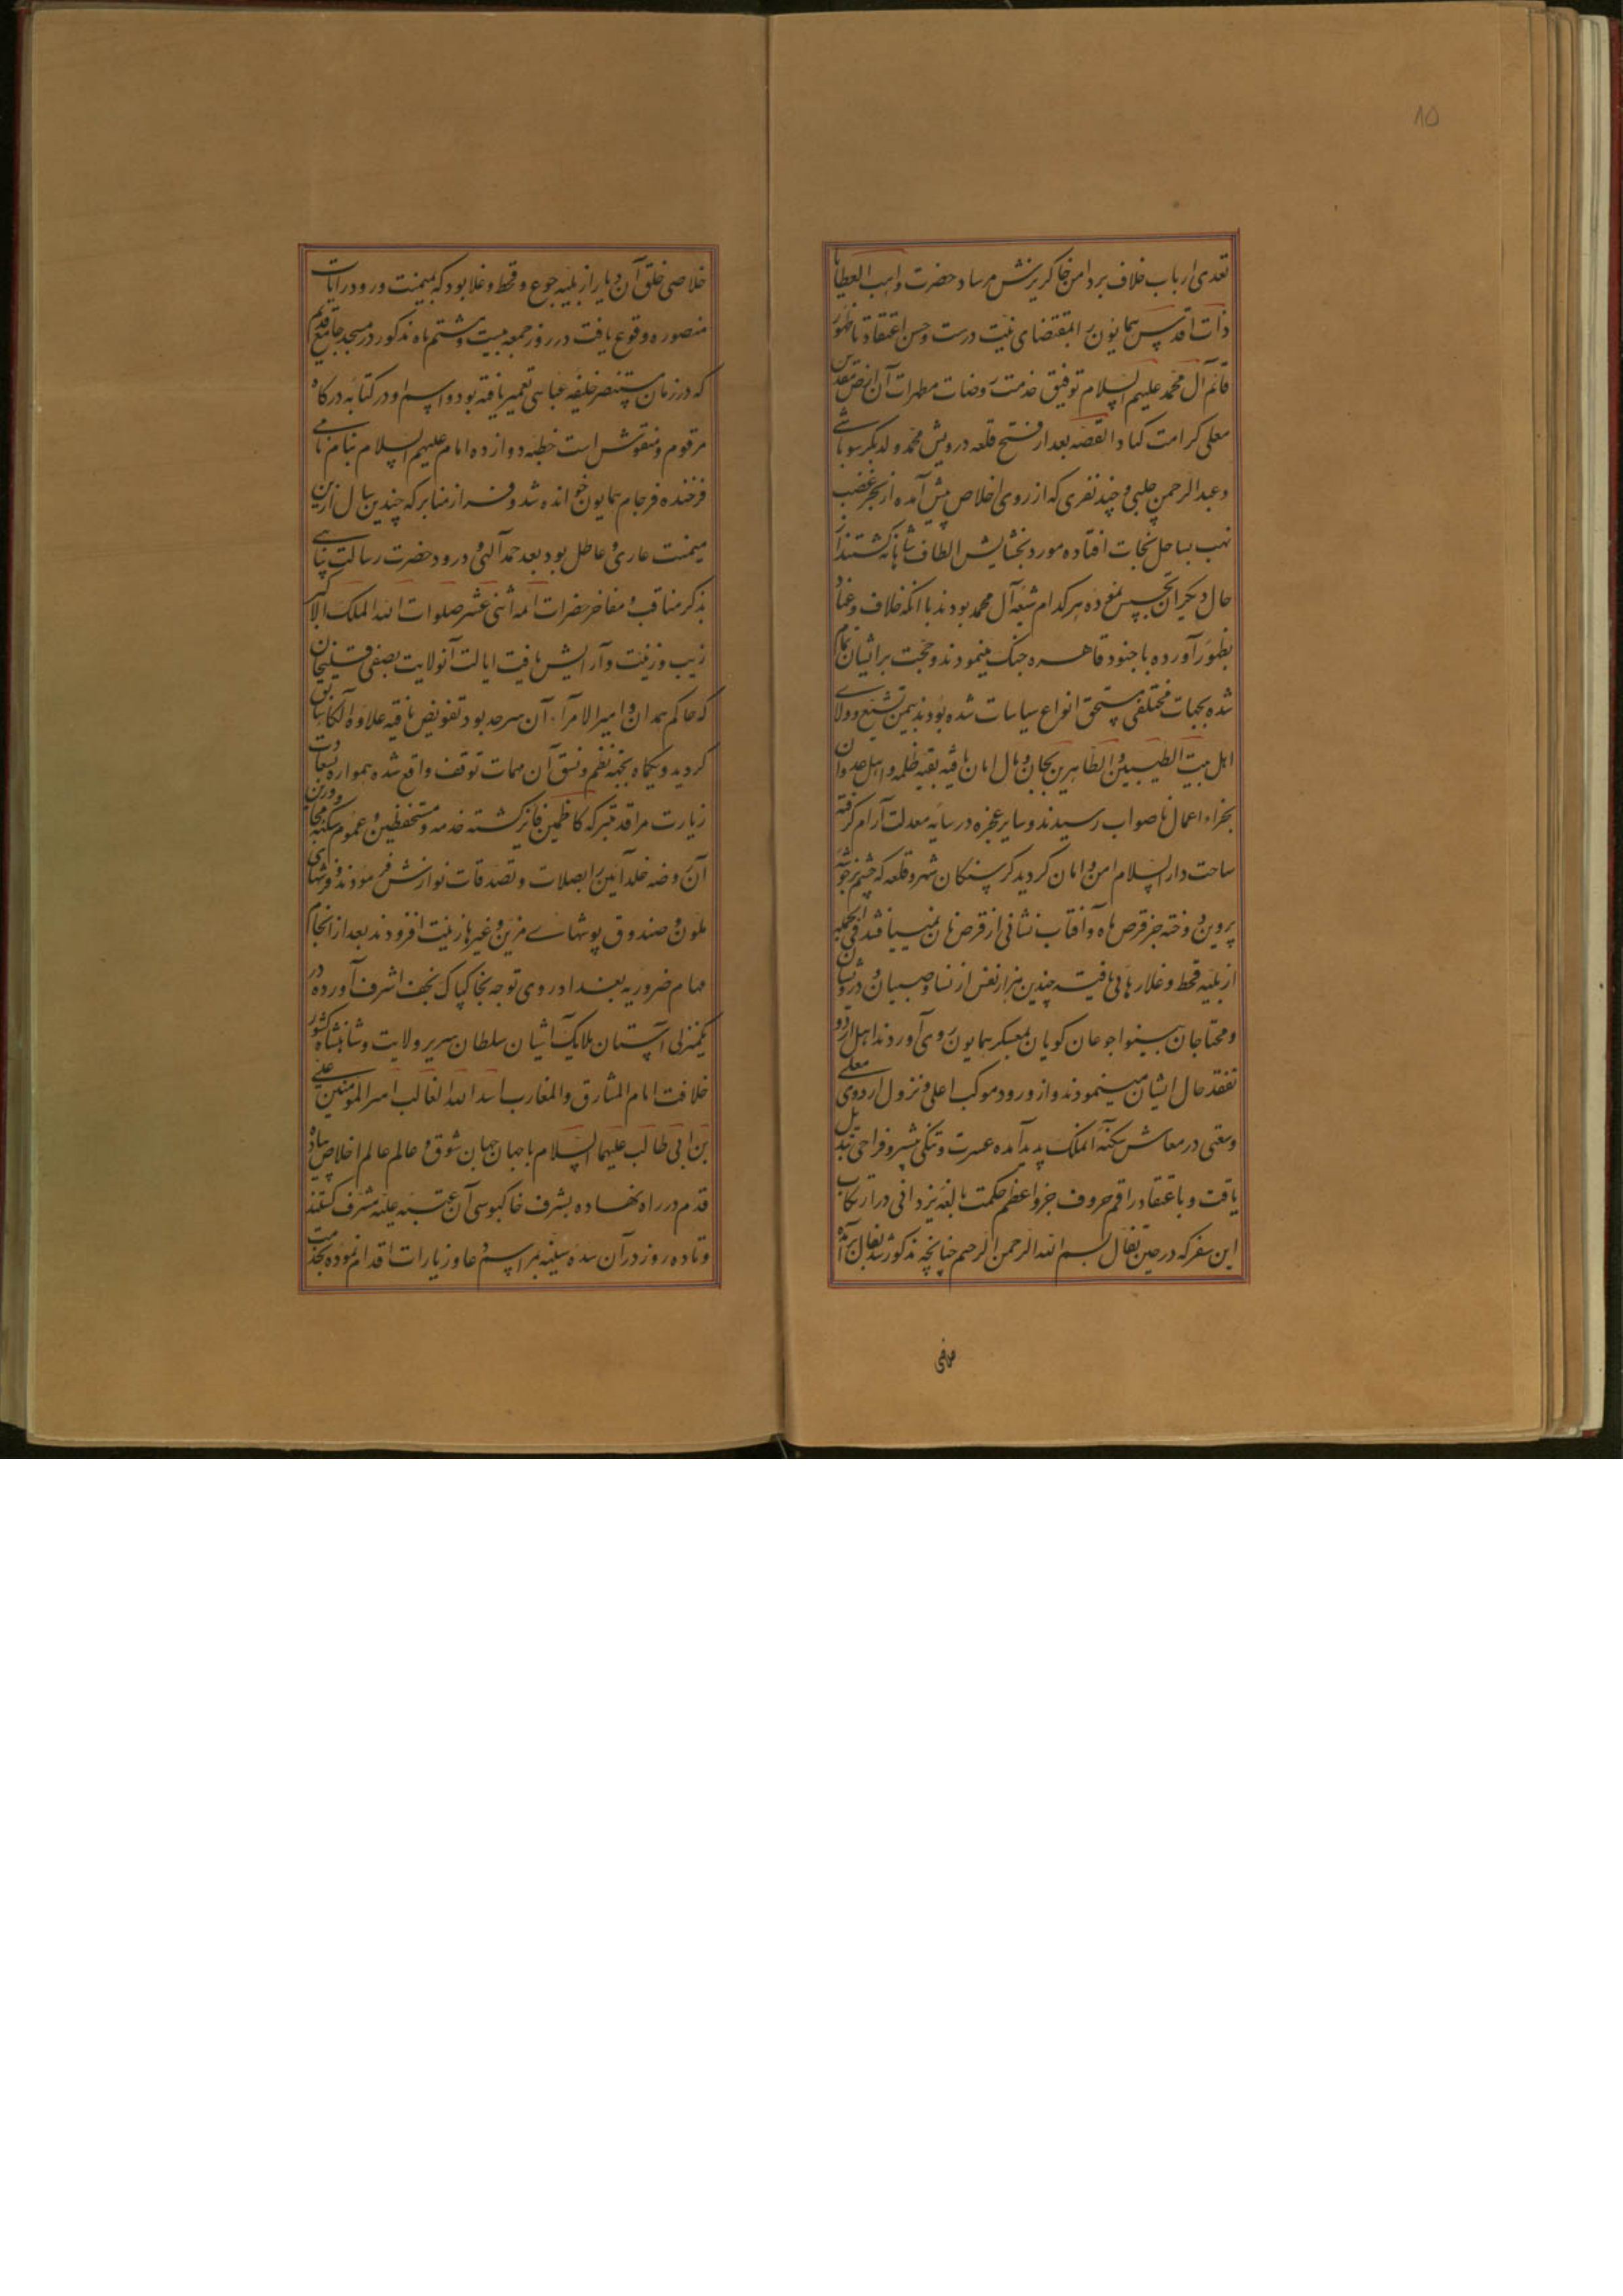 ۱۵
تعدی ارباب خلاف بر دامن خاک ریزش مرساد حضرت واهب العطایا
ذات اقدس همایون را بمقتضای نیت درست و حسن اعتقاد تا ظهور
قائم آل محمد علیهم السلام توفیق خدمت روضات مطهرات آن ارض مقدس
معلی کرامت کناد القصه بعد از فتح قلعه درویش محمد ولد بکر سوباشی
و عبدالرحمن چلبی و چند نفری که از روی اخلاص پیش آمده از بحر غضب
نهب بساحل نجات افتاده مورد بخشایش الطاف شاهانه گشتند از
حال دیگران تجسس نموده هر کدام شیعه آل محمد بودند با آنکه خلاف و عناد
بظهور آورده با جنود قاهره جنگ مینمودند و حجت بر ایشان تمام
شده بجهات مختلفی مستحق انواع سیاسات شده بودند بیمن تشیع و ولای
اهل بیت الطیبین و الطاهرین بجان و مال امان یافته بقیه ظلمه و اهل عدوان
بجزاء اعمال ناصواب رسیدند و سایر عجزه در سایه معدلت آرام گرفته
ساحت دار السلام امن و امان گردید گرسنگان شهر و قلعه که چشم بر خوشه
پروین دوخته جز قرص ماه و آفتاب نشانی از قرص نان نمییافتند فی الجمله
از بلیه قحط و غلا رهائی یافته چندین هزار نفس از نسا و صبیان و درویشان
و محتاجان بینوا جوعان گویان بمعسکر همایون روی آوردند اهل اردو
تفقد حال ایشان مینمودند و از ورود موکب اعلی و نزول اردوی معلی
وسعتی در معاش سکنه آنملک پدید آمده عسرت و تنگی بیسر و فراخی تبدیل
یافت و باعتقاد راقم حروف جزو اعظم حکمت بالغه یزدانی در ارتکاب
این سفر که در حین تفال بسم الله الرحمن الرحیم چنانچه مذکور شد تفال برآمده
خلاصی
خلاصی خلق آن دیار از بلیه جوع و قحط و غلا بود که بمیمنت ورود رایات
منصوره وقوع یافت در روز جمعه بیست و هشتم ماه مذکور در مسجد جامع قدیم
که در زمان مستنصر خلیفه عباسی تعمیر یافته بود و اسم او در کتابه درگاه
مرقوم و منقوش است خطبه دوازده امام علیهم السلام بنام نامی
فرخنده فرجام همایون خوانده شد و فراز منابر که چندین سال ازین
میمنت عاری و عاطل بود بعد حمد آلهی و درود حضرت رسالت پناهی
بذکر مناقب و مفاخر حضرات ائمه اثنی عشر صلوات الله الملک الاکبر
زیب و زینت و آرایش یافت ایالت آنولایت بصفی قلیخان
که حاکم همدان و امیر الامراء آن سرحد بود تفویض یافته علاوه الکاء سابق
گردید و یکماه بجهة نظم و نسق آن مهمات توقف واقع شده همواره بسعادت
زیارت مراقد متبرکه کاظمین فائز گشته خدمه و مستحفظین و عموم سکنه و مجاورین
آن روضه خلد آئین را بصلات و تصدقات نوازش فرمودند و فرشهای
ملون و صندوق پوشهای مزین و غیرها زینت افزودند بعد از انجام
مهام ضروریه بغداد روی توجه بخاک پاک نجف اشرف آورده در
یکمنزلی آستان ملایک آشیان سلطان سریر ولایت و شاهنشاه کشور
خلافت امام المشارق و المغارب اسد الله الغالب امیر المؤمنین علی
بن ابی طالب علیهما السلام با جهان جهان شوق و عالم عالم اخلاص پیاده
قدم در راه نهاده بشرف خاکبوسی آن عتبه علیه مشرف گشتند
و تا ده روز در آن سده سنیه بمراسم دعا و زیارات اقدام نموده بخدمت